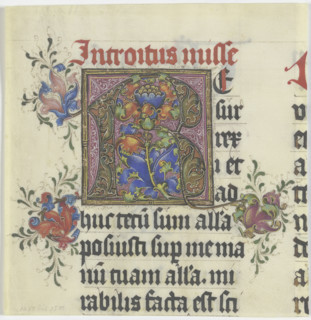 Introitus misse
RE
sur
rex
i et
ad
huc tecũ sum all'a
posuisti sup me ma
nũ tuam all'a. mi
rabilis facta est sci